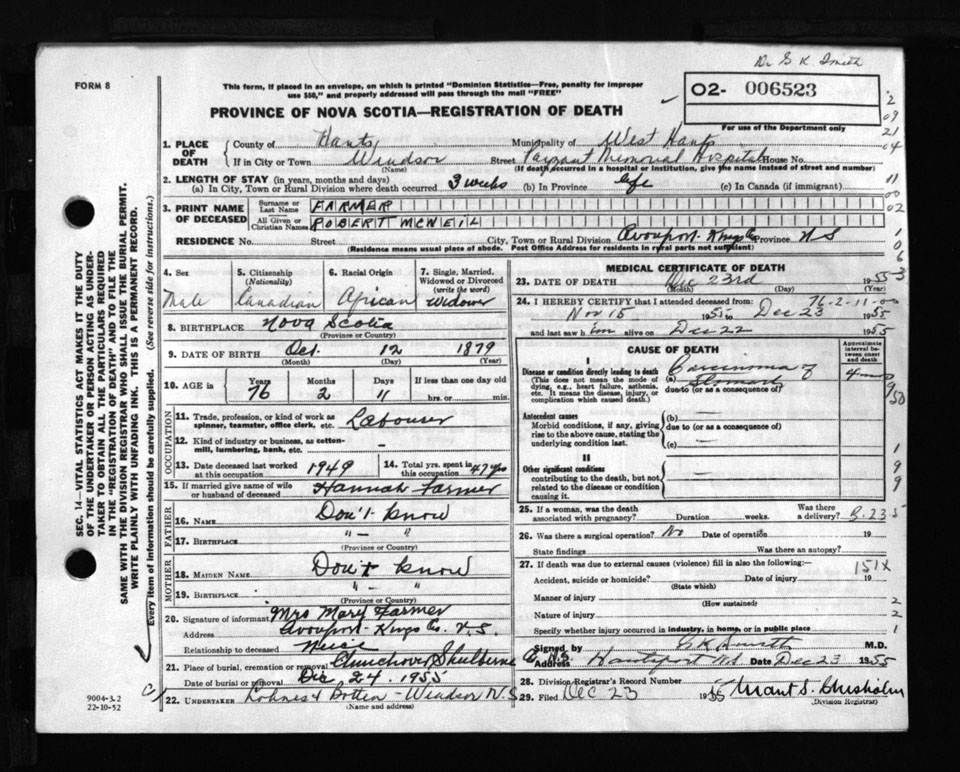 Dr G K Smith
FORM 8
This form, if placed in an envelope, on which is printed "Dominion Statistics—Free, penalty for improper
use $50," and properly addressed will pass through the mail "FREE"
O2- 006523
For use of the Department only
PROVINCE OF NOVA SCOTIA—REGISTRATION OF DEATH
2
09
21
04
11
00
02
1
0
6
3
1. PLACE OF DEATH
County of Hants Municipality of West Hants
If in City or Town Windsor Street Payzant Memorial Hospital House No.
(Name) (If death occurred in a hospital or institution, give the name instead of street and number)
2. LENGTH OF STAY (in years, months and days)
(a) In City, Town or Rural Division where death occurred 3 weeks (b) In Province life (c) In Canada (if immigrant)
3. PRINT NAME OF DECEASED
Surname or Last Name FARMER
All Given or Christian Names ROBERT MCNEIL
RESIDENCE No. Street City, Town or Rural Division Avonport - Kings Co Province N S
(Residence means usual place of abode. Post Office Address for residents in rural parts not sufficient)
4. Sex Male
5. Citizenship (Nationality) Canadian
6. Racial Origin African
7. Single, Married, Widowed or Divorced (write the word) Widower
8. BIRTHPLACE Nova Scotia
(Province or Country)
9. DATE OF BIRTH Oct. 12 1879
(Month) (Day) (Year)
10. AGE in Years 76 Months 2 Days 11 If less than one day old hrs. or min.
OCCUPATION
11. Trade, profession, or kind of work as spinner, teamster, office clerk, etc. Labourer
12. Kind of industry or business, as cotton-mill, lumbering, bank, etc. —
13. Date deceased last worked at this occupation 1949
14. Total yrs. spent in this occupation 47 yrs
15. If married give name of wife or husband of deceased Hannah Farmer
FATHER
16. NAME Don't know
17. BIRTHPLACE " — "
(Province or Country)
MOTHER
18. MAIDEN NAME Don't know
19. BIRTHPLACE " - "
(Province or Country)
20. Signature of informant Mrs Mary Farmer
Address Avonport - Kings Co. N.S.
Relationship to deceased Niece
21. Place of burial, cremation or removal Shelburne
Date of burial or removal Dec 24. 1955
22. UNDERTAKER - Windsor N.S
(Name and address)
MEDICAL CERTIFICATE OF DEATH
23. DATE OF DEATH Dec 23rd 1955
(Month) (Day) (Year)
76-2-11-00
24. I HEREBY CERTIFY that I attended deceased from:
Nov 15 1955 to Dec 23 1955
and last saw h im alive on Dec 22 1955
CAUSE OF DEATH
Approximate interval between onset and death
I
Disease or condition directly leading to death
(This does not mean the mode of dying, e.g., heart failure, asthenia, etc. It means the disease, injury, or complication which caused death.)
(a) Carcinoma of Stomach
due to (or as a consequence of)
Antecedent causes
Morbid conditions, if any, giving rise to the above cause, stating the underlying condition last.
(b) —
due to (or as a consequence of)
(c) —
II
Other significant conditions
contributing to the death, but not related to the disease or condition causing it.
1
9
9
25. If a woman, was the death associated with pregnancy? Duration weeks. Was there a delivery?
26. Was there a surgical operation? No Date of operation 19
State findings Was there an autopsy?
27. If death was due to external causes (violence) fill in also the following:—
151X
Accident, suicide or homicide? Date of injury 19
(State which)
Manner of injury 2
(How sustained)
Nature of injury 2
Specify whether injury occurred in industry, in home, or in public place 1
Signed by G K Smith M.D.
Address Hantsport NS Date Dec 23 1955
28. Division Registrar's Record Number
29. Filed Dec 23 1955 Grant S. Chisholm
(Division Registrar)
SEC. 14—VITAL STATISTICS ACT MAKES IT THE DUTY
OF THE UNDERTAKER OR PERSON ACTING AS UNDER-
TAKER TO OBTAIN ALL THE PARTICULARS REQUIRED
IN THE "REGISTRATION OF DEATH" AND TO FILE THE
SAME WITH THE DIVISION REGISTRAR WHO SHALL ISSUE THE BURIAL PERMIT.
WRITE PLAINLY WITH UNFADING INK. THIS IS A PERMANENT RECORD.
Every item of information should be carefully supplied. (See reverse side for instructions.)
9004-3.2
22-10-52